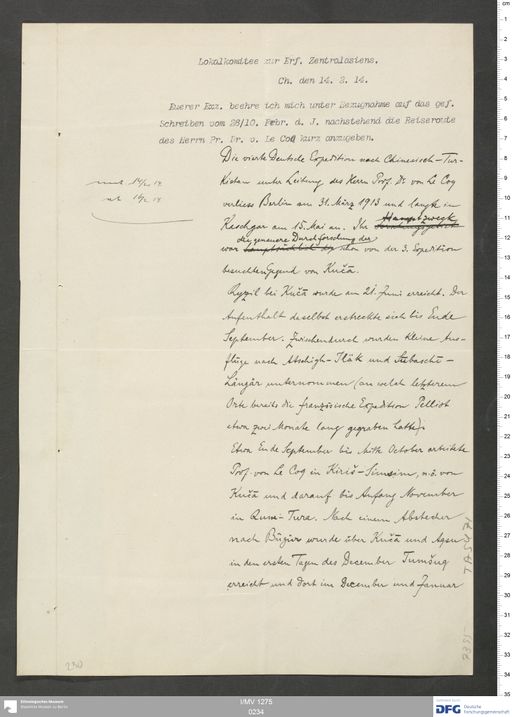 Lokalkomitee zur Erf. Zentralasiens.
Ch. den 14. 3. 14.
Euerer Exz. beehre ich mich unter Bezugnahme auf das gef.
Schreiben vom 28/10. Febr. d. J. nachstehend die Reiseroute
des Herrn Pr. Dr. v. Le Coq kurz anzugeben.
Die vierte Deutsche Expedition nach Chinesisch-Tur-
kistan unter Leitung des Herrn Prof. Dr von Le Coq
verliess Berlin am 31. März 1913 und langte in
Kaschgar am 15. Mai an. Ihr Hauptzweck
war die genauere Durchforschung der schon von der 3. Expedition
besuchten Gegend von Kučā.
Kyzil bei Kučā wurde am 21. Juni erreicht. Der
Aufenthalt daselbst erstreckte sich bis Ende
September. Zwischendurch wurden kleine Aus-
flüge nach Atschigh-Iläk und
Längär unternommen (an welch letzterem
Orte bereits die französische Expedition Pelliot
etwa zwei Monate lang gegraben hatte).
Etwa Ende September bis Mitte October arbeitete
Prof. von Le Coq in Kiriš-Simsim, nö. von
Kučā und darauf bis Anfang November
in Qum-Tura. Nach einem Abstecher
nach Bügür wurde über Kučā und Aqsu
in den ersten Tagen des December Tumšuq
erreicht und dort im December und Januar
230
TA 5471
Ethnologisches Museum
Staatliche Museen zu Berlin
I/MV 1275
0234
DFG Deutsche
Forschungsgemeinschaft